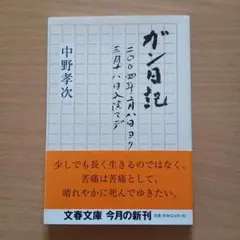 ガン日記
二〇〇四年二月八日ヨリ
三月十八日入院マデ
中野孝次
少しでも長く生きるのではなく。
苦痛は苦痛として、
晴れやかに死んでゆきたい。
文春文庫 今月の新刊